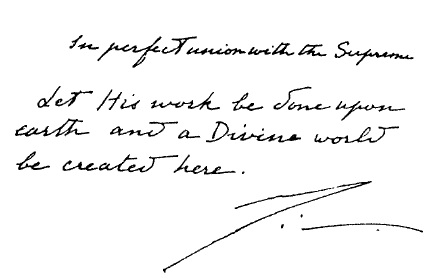 In perfect union with the Supreme
Let His work be done upon
earth and a Divine world
be created here.